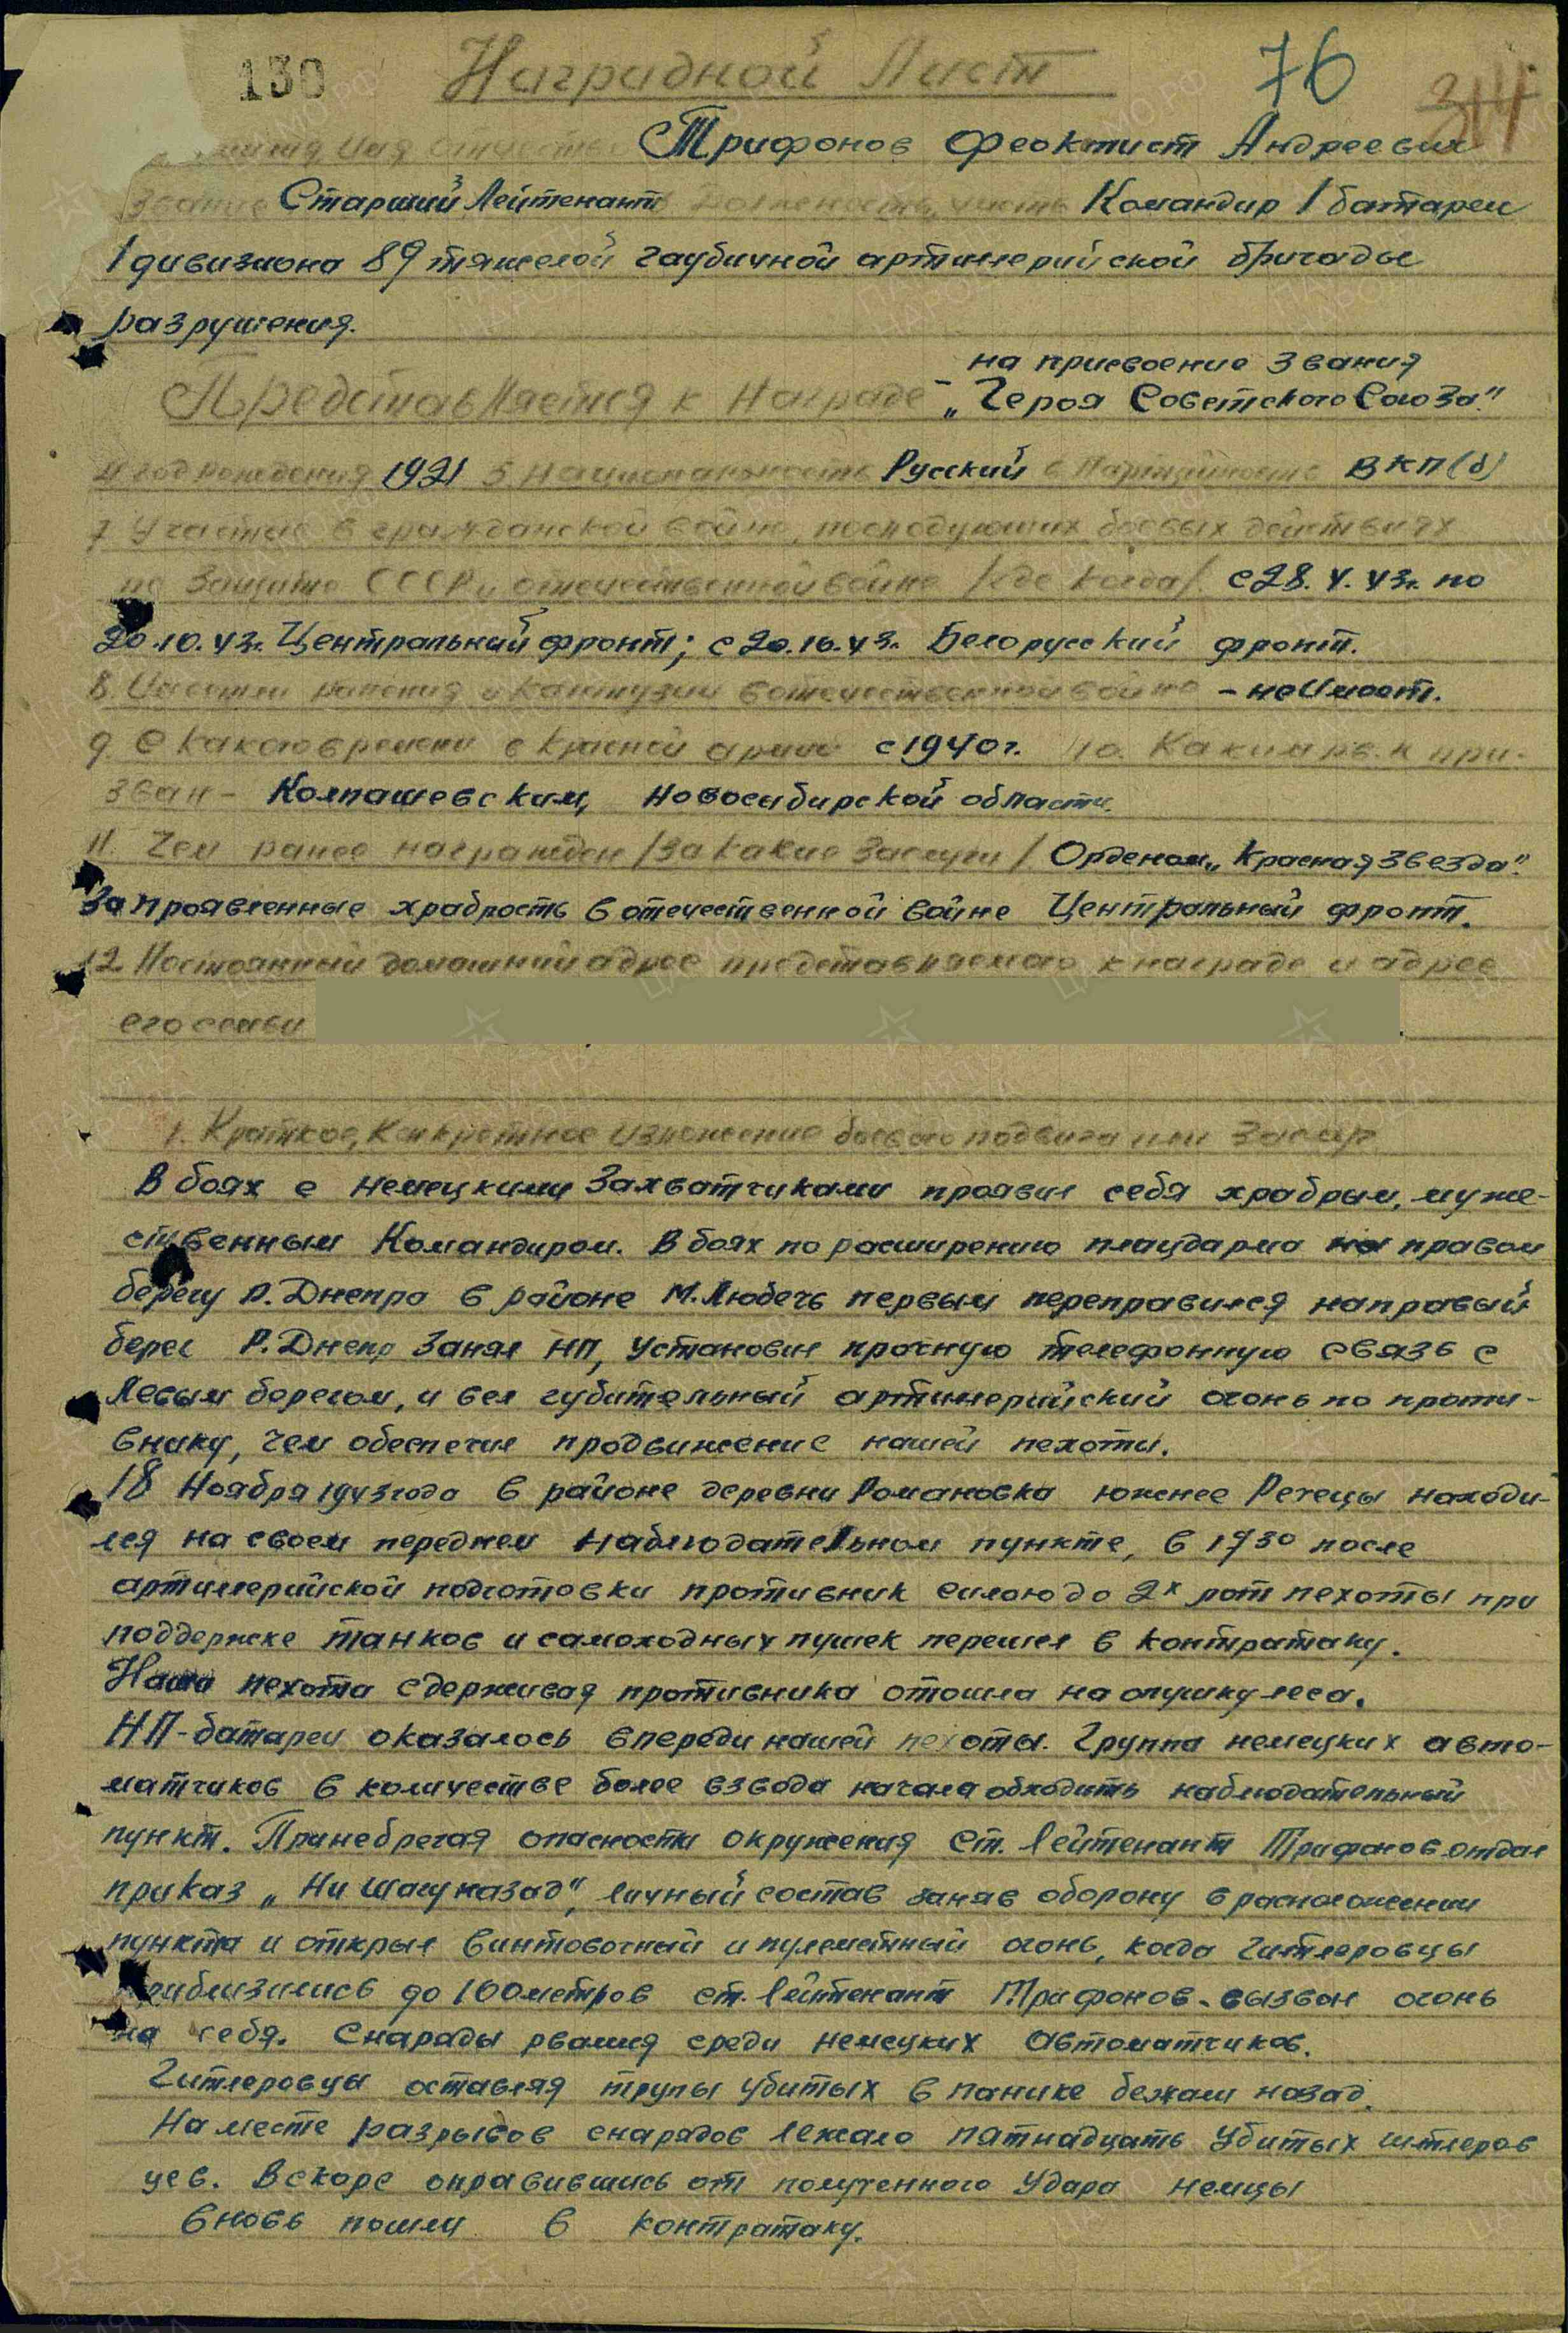 130
Наградной Лист
76
314
Имя Отчество Трифонов Феоктист Андреевич
Звание Старший Лейтенант должность, часть Командир 1 батареи
1 дивизиона 89 тяжелой гаубичной артиллерийской бригады
разрушения.
на присвоение звания
Представляется к награде - „Героя Советского Союза".
4 год рождения 1921 5 национальность Русский 6 Партийность ВКП(б)
7 Участие в гражданской войне, последующих боевых действиях
по защите СССР и отечественной войне /где когда/. с 28.V.43г. по
20.10.43г. Центральный фронт; с 20.10.43г. Белорусский фронт.
8. Имеет ли ранения и контузии в отечественной войне - не имеет.
9. С какого времени в Красной армии с 1940г. 10. Каким рв.к при-
зван - Колпашевским, Новосибирской области.
11. Чем ранее награжден /за какие заслуги/ Орденом „Красная звезда".
За проявленные храбрость в отечественной войне Центральный фронт.
12. Постоянный домашний адрес представляемого к награде и адрес
его семьи
1. Краткое, конкретное изложение боевого подвига или заслуг
В боях с немецкими захватчиками проявил себя храбрым, муже-
ственным Командиром. В боях по расширению плацдарма на правом
берегу р. Днепра в районе м. Любечь первым переправился на правый
берег р. Днепр занял НП, установил прочную телефонную связь с
Левым берегом, и вел губительный артиллерийский огонь по проти-
внику, чем обеспечил продвижение нашей пехоты.
18 Ноября 1943 года в районе деревни Романовка южнее Речецы находи-
лся на своем переднем наблюдательном пункте, в 17 30 после
артиллерийской подготовки противник силою до 2х рот пехоты при
поддержке танков и самоходных пушек перешел в контратаку.
Наша пехота сдерживая противника отошла на опушку леса.
НП-батареи оказалось впереди нашей пехоты. Группа немецких авто-
матчиков в количестве более взвода начала обходить наблюдательный
пункт. Принебрегая опасности окружения Ст. Лейтенант Трифонов отдал
приказ „Ни шагу назад", личный состав заняв оборону в расположении
пункта и открыл винтовочный и пулеметный огонь, когда гитлеровцы
приблизились до 100 метров ст. Лейтенант Трифонов - вызвал огонь
на себя. Снаряды рвались среди немецких автоматчиков.
Гитлеровцы оставляя трупы убитых в панике бежали назад.
На месте разрывов снарядов лежало пятнадцать убитых гитлеров
цев. Вскоре оправившись от полученного удара немцы
вновь пошли в контратаку.